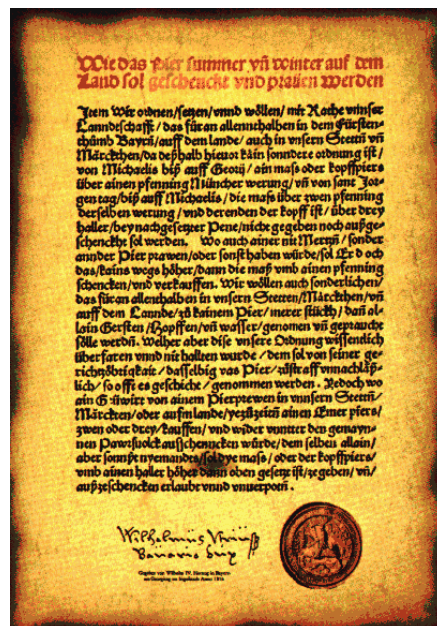 Wie das Pier summer vñ winter auf dem
Land sol geschenckt vnd prauen werden
Item Wir ordnen/setzen/vnnd wöllen/mit Rathe vnnser
Lanndtschafft/das für an allennthalben in dem Fürsten-
thůmb Bayrñ/auff dem lande/auch in vnsern Stettñ vñ
Märckthen/da deßhalb hieuor kain sonndere ordnung ist/
von Michaelis biß auff Georij/ain mass oder kopffpiers
über ainen pfenning Müncher werung/vñ von sant Jor-
gen tag/biß auff Michaelis/die mass über zwen pfenning
derselben werung/vnd derenden der kopff ist/über drey
haller/bey nachgesetzter Pene/nicht gegeben noch außge-
schenckht sol werden. Wo auch ainer nit Mertzñ/sonder
annder Pier prawen/oder sonst haben würde/sol Er doch
das/kains wegs höher/dann die maß vmb ainen pfenning
schencken/vnd verkauffen. Wir wöllen auch sonderlichen/
das für an allenthalben in vnsern Stetten/Märckthen/vñ
auff dem Lannde/zů kainem Pier/merer stückh/dañ al-
lain Gersten/Hopffen/vñ wasser/genomen vñ gepraucht
sölle werdñ. Welher aber dise vnsere Ordnung wissentlich
überfaren vnnd nit hallten wurde/dem sol von seiner ge-
richtzöbrigkait/dasselbig vas Pier/zůstraff vnnachläß-
lich/so offt es geschicht/genommen werden. Yedoch wo
ain Güwirt von ainem Pierprewen in vnnsern Stettñ/
Märckten/oder aufm lande/yezůzeitñ ainen Emer piers/
zwen oder drey/kauffen/vnd wider vnntter den gemayn-
nen Pawrsuolck ausschenncken würde/dem selben allain/
aber sonnst nyemandes/sol dye mass/oder der kopffpiers/
vmb ainen haller höher dann oben gesetzt ist/zegeben/vñ/
außzeschencken erlaubt vnnd vnuerpotñ.
Gegeben von Wilhelm IV. Herzog in Bayern
am Georgitag zu Ingolstadt Anno 1516